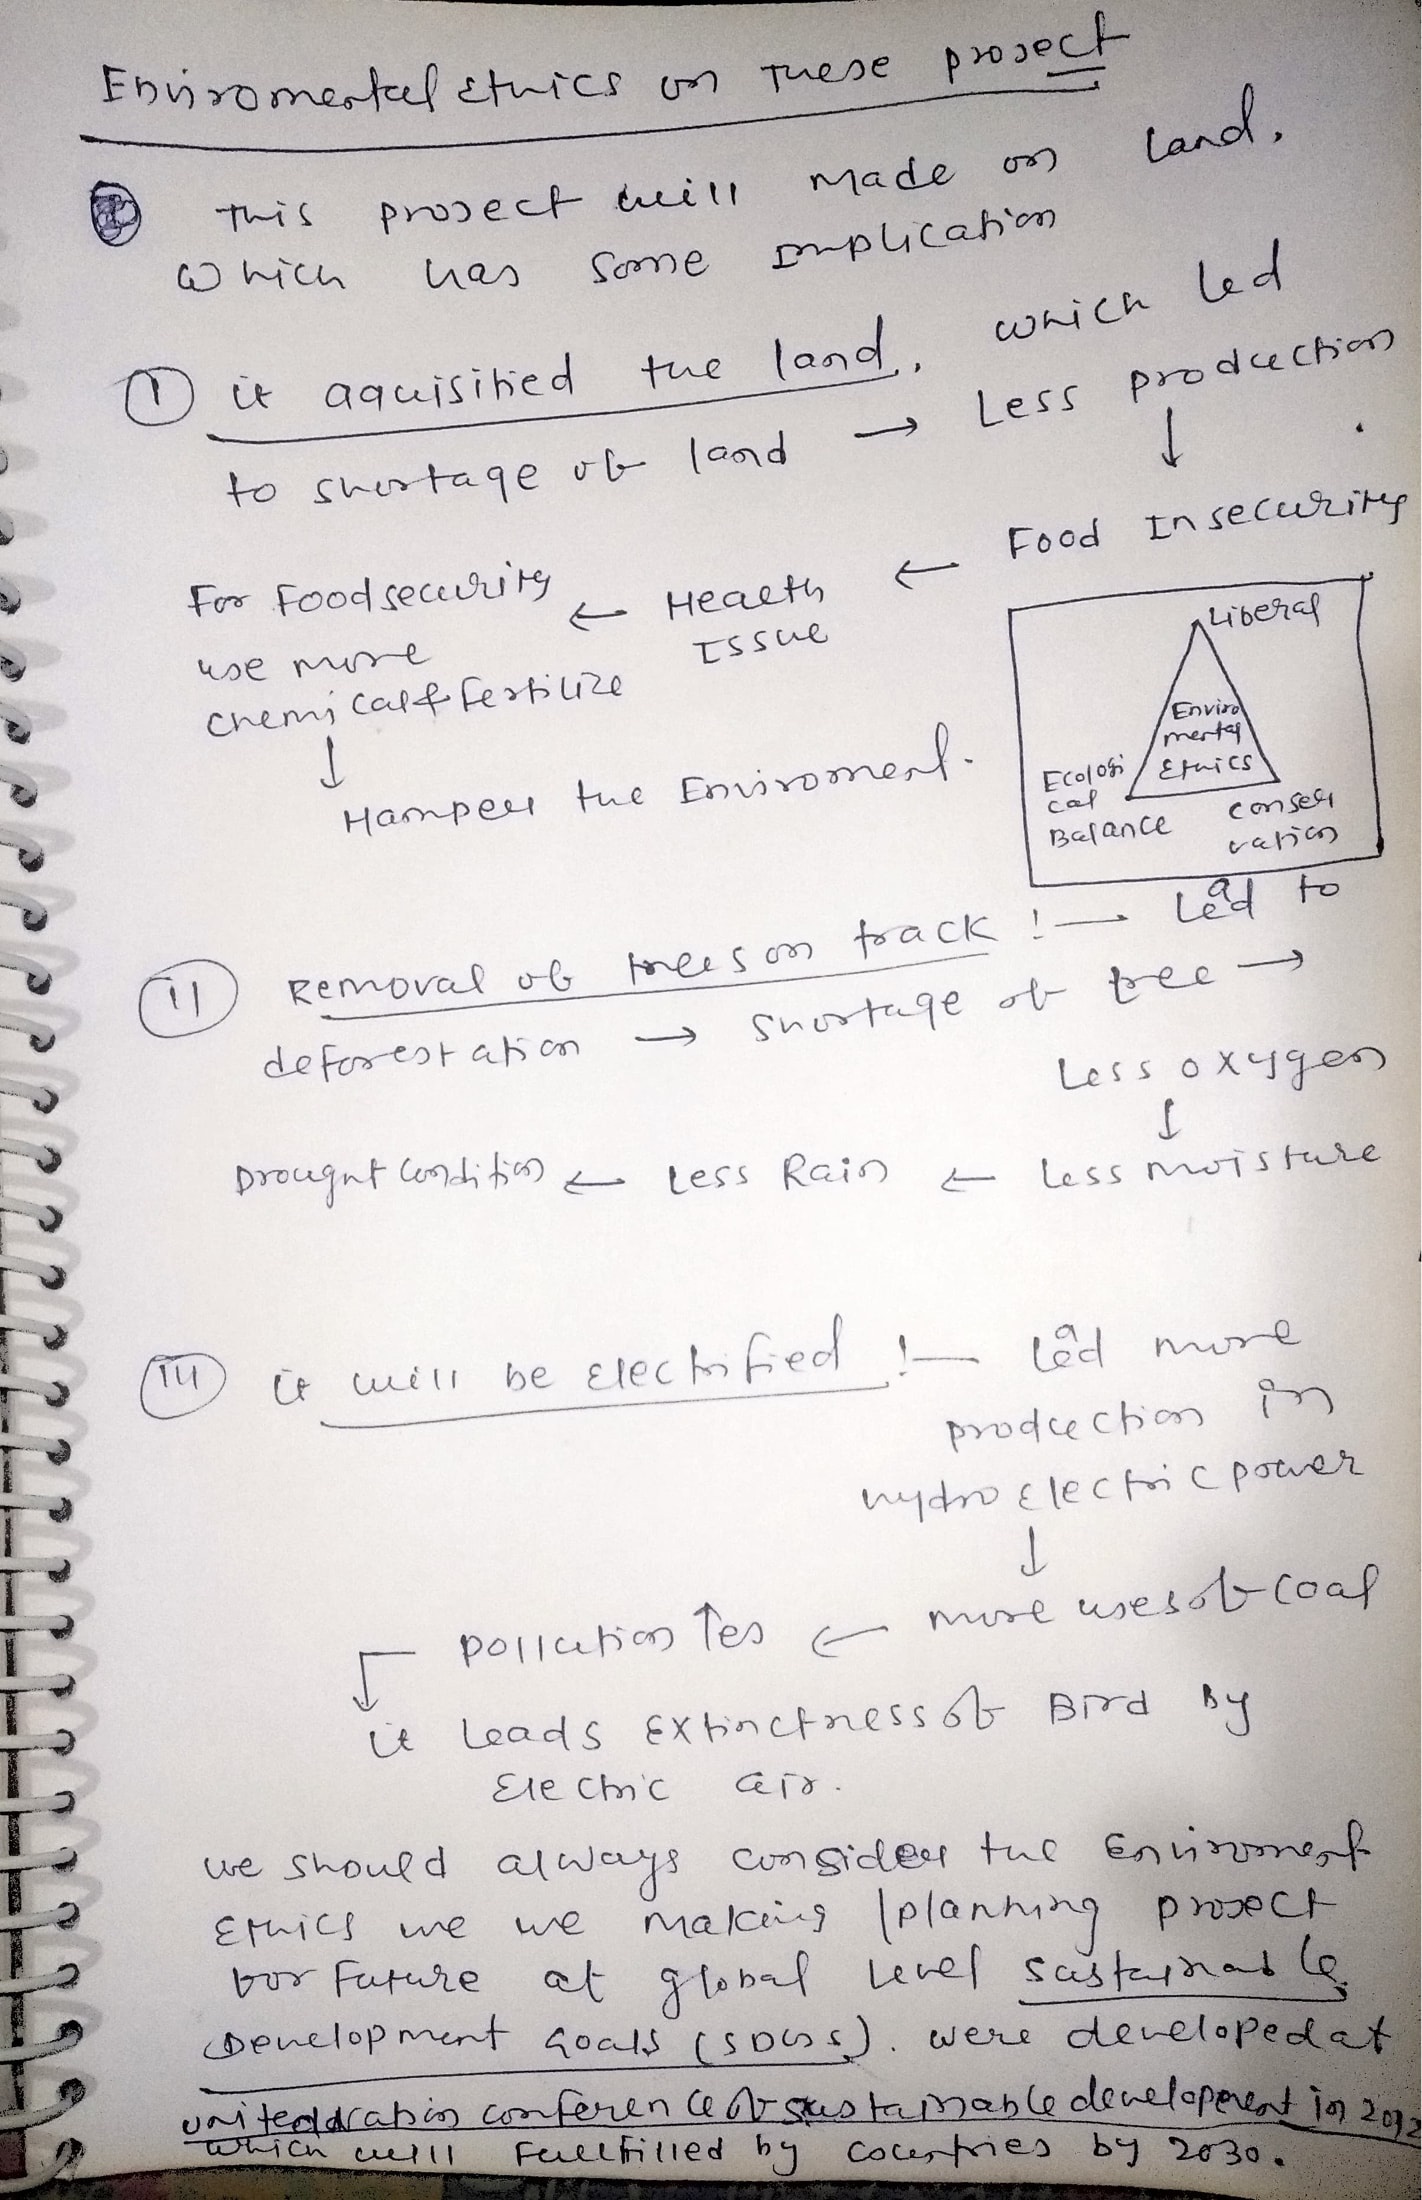 Enviromental Ethics on These project
This project will made on land.
which has some implication
(I) it aquisitied the land, which led
to shortage of land → Less production
↓
Food Insecurity
← Health Issue
← For Food security
use more
chemical & Fertilize
↓
Hamper the Enviroment.
Liberal
Enviro
mental
Ethics
Ecologi
cal
Balance
conser
vation
(II) Removal of trees on track :— Lead to
deforestation → shortage of tree →
Less oxygen
↓
Drought condition ← Less Rain ← Less moisture
(III) it will be Electrified :— lead more
production in
hydro Electric power
↓
pollution ↑es ← more uses of coal
↓
it leads Extinctness of Bird By
Electric air.
we should always consider the Enviroment
Ethics we we making / planning project
for Future at global level Sustainable
Development Goals (SDGs). were developed at
united nation conference of sustainable development in 2012
which will Fullfilled by countries by 2030.